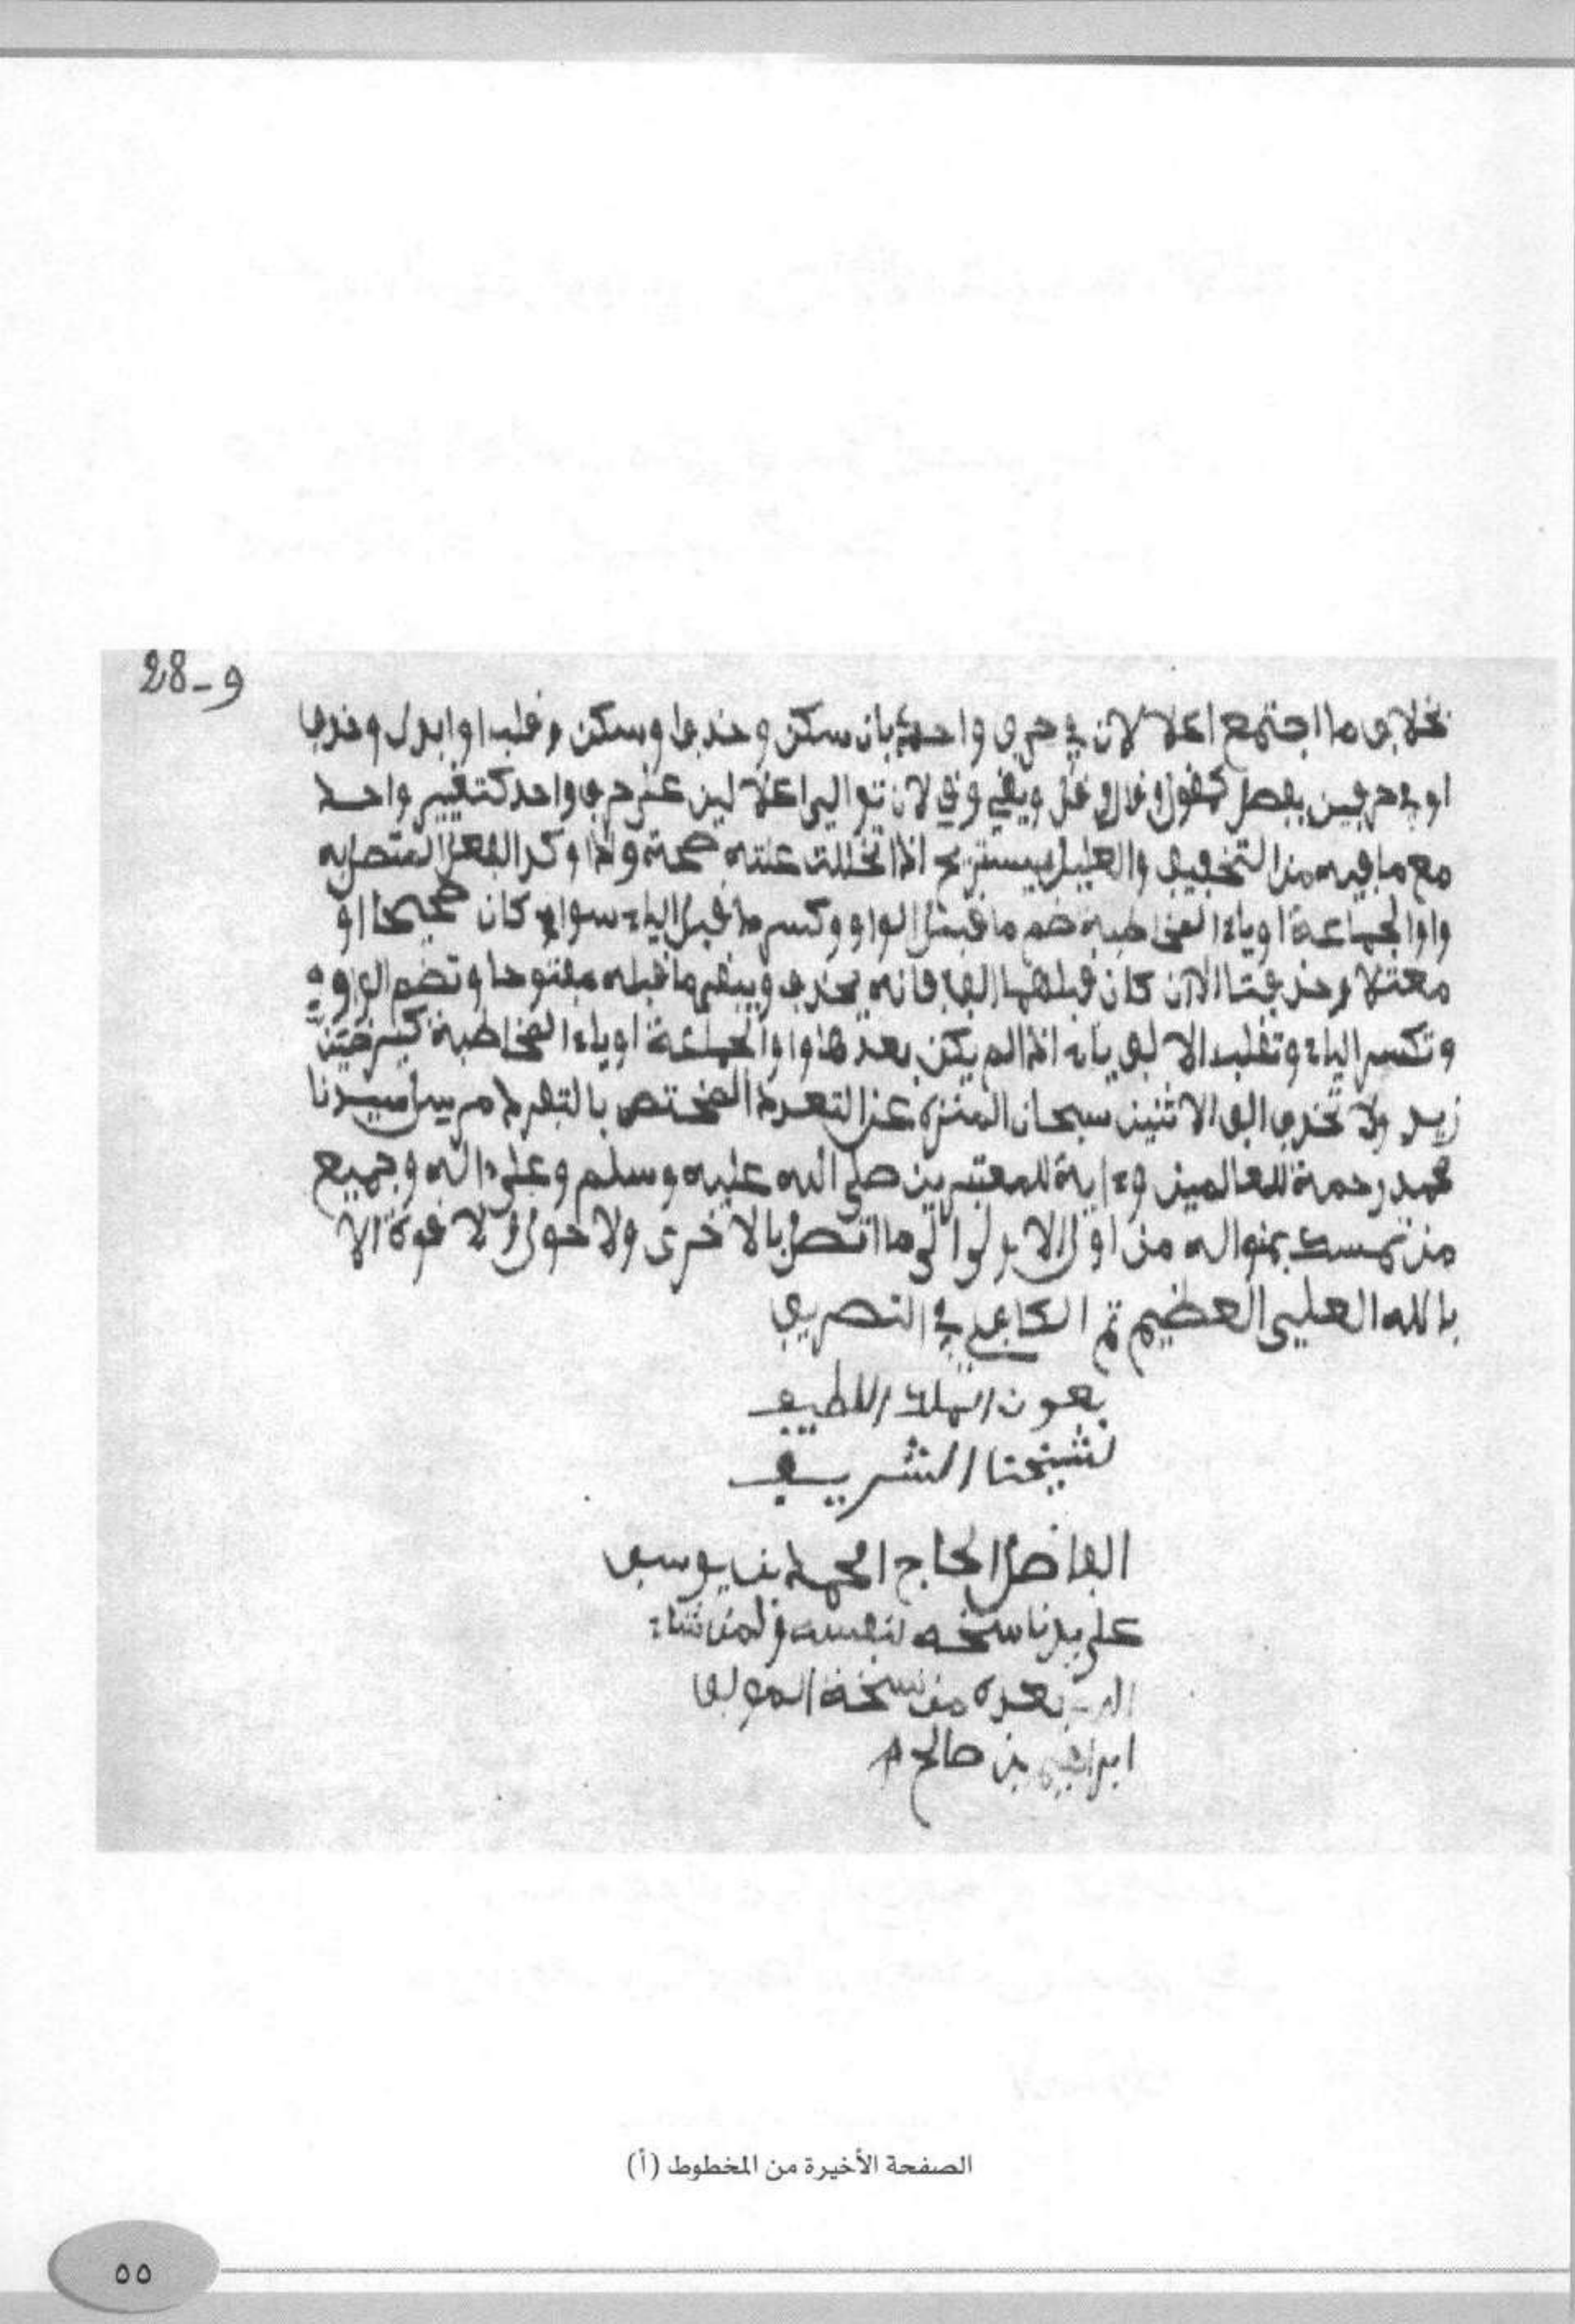 و-28
بخلاف ما اجتمع اعلالان في حرف واحد بان سكن وحذف او سكن وقلب او ابدل وحذف
او في حرفين بفصل كيقول وقال وقل ويقي وفي لان توالي اعلالين عن حرف واحد كتغيير واحد
مع ما فيه من التخفيف والعليل يستريح اذا تخللت علته صحة واذا وكد الفعل المتصل به
واو الجماعة او ياء المخاطبة ضم ما قبل الواو وكسر ما قبل الياء سواء كان صحيحا او
معتلا وحذفتا الا ان كان قبلهما الف فانه يحذف ويبقى ما قبله مفتوحا وتضم الواو
وتكسر الياء وتقلب الالف ياء اذا لم يكن بعدها واو الجماعة او ياء المخاطبة
زيد ولا تحذف الف الاثنين سبحان المنزه عن التعدد المختص بالتفرد مرسل سيدنا
محمد رحمة للعالمين وءاية للمعتبرين صلى الله عليه وسلم وعلى ءاله وجميع
من تمسك بمنواله من اول الا ولى ما اتصل بالاخرى ولا حول ولا قوة الا
بالله العلي العظيم تم الكافي في التصريف
بعون الملك اللطيف
لشيخنا الشريف
الفاضل الحاج امحمد بن يوسف
على يد ناسخه لنفسه ولمن شاء
الله بعده من نسخة المؤلف
ابراهيم بن صالح
الصفحة الأخيرة من المخطوط (أ)
٥٥